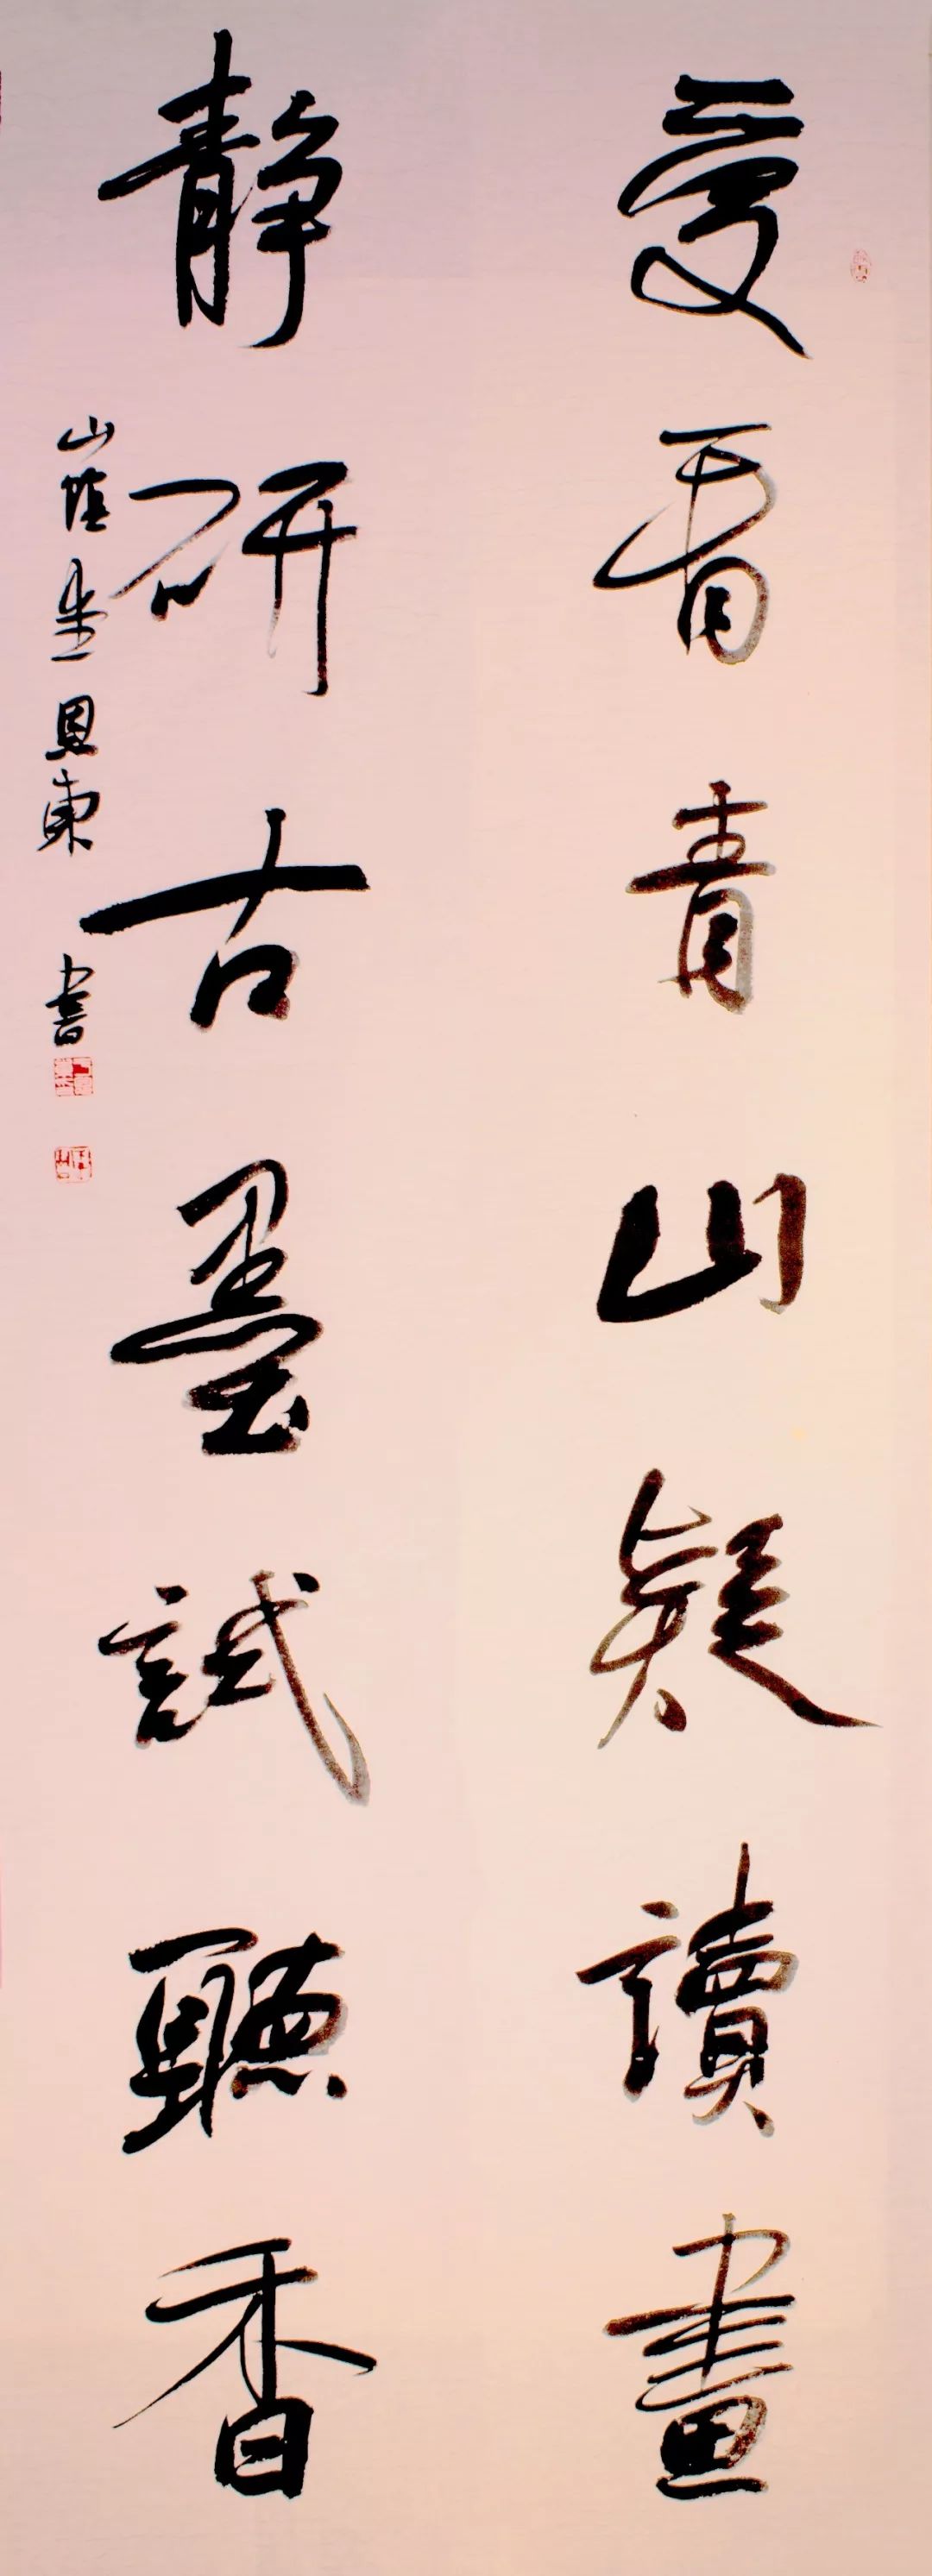 愛看青山疑讀畫
静研古墨試聽香
山陰恩東書